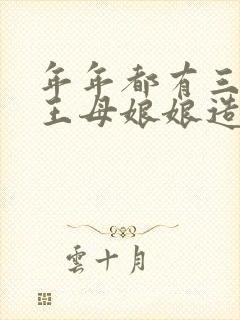 年年都有三
王母娘娘造
雲十月